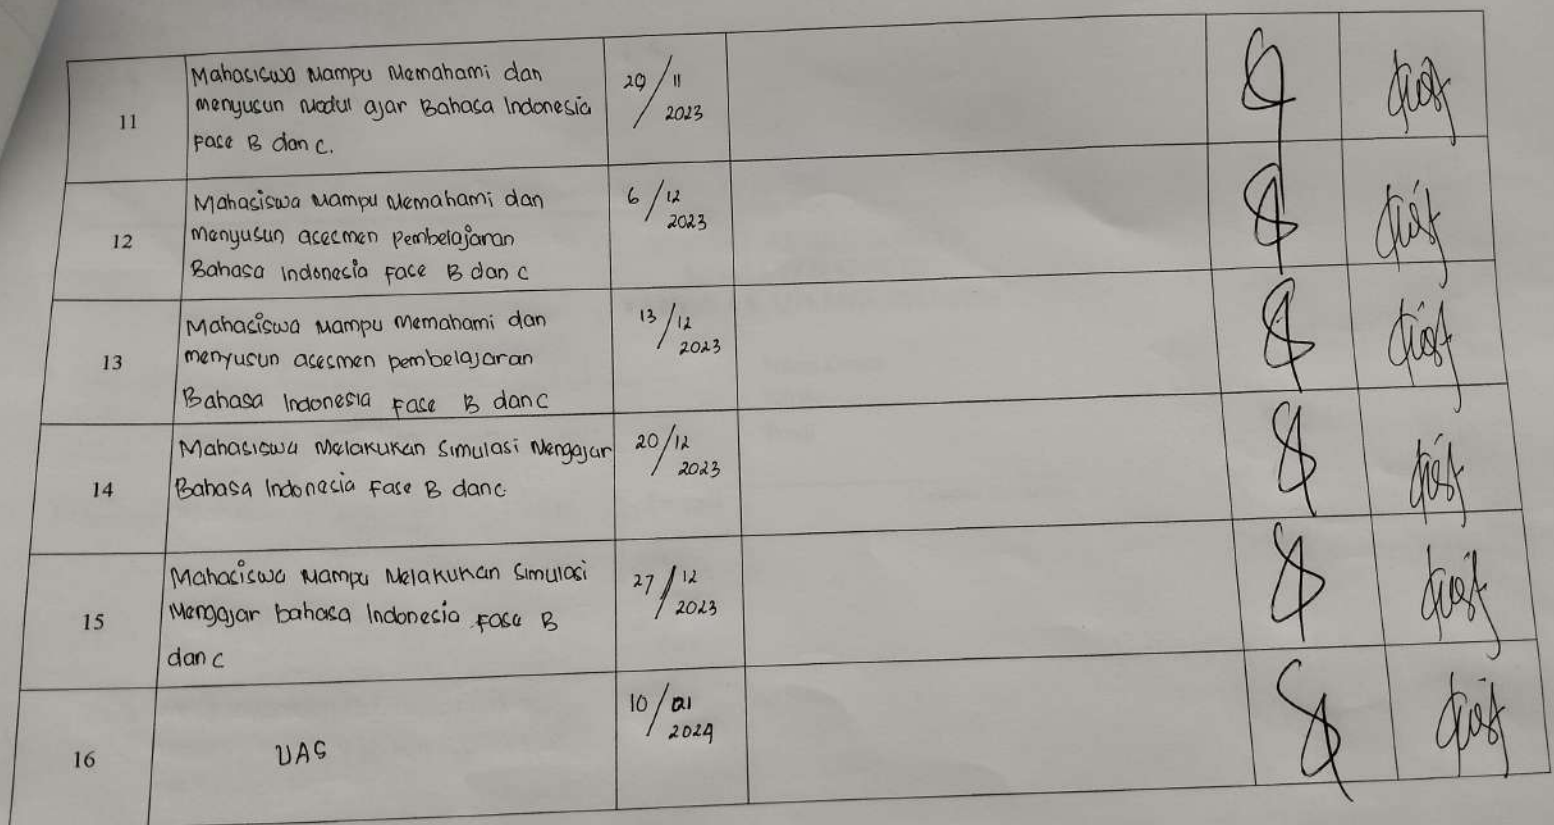 11
Mahasiswa Mampu Memahami dan
menyusun Modul ajar Bahasa Indonesia
Fase B dan C.
29/11
2023
12
Mahasiswa Mampu Memahami dan
menyusun asesmen Pembelajaran
Bahasa Indonesia Fase B dan C
6/12
2023
13
Mahasiswa Mampu Memahami dan
menyusun asesmen pembelajaran
Bahasa Indonesia Fase B dan C
13/12
2023
14
Mahasiswa Melakukan Simulasi Mengajar
Bahasa Indonesia Fase B dan C
20/12
2023
15
Mahasiswa Mampu Melakukan Simulasi
Mengajar bahasa Indonesia Fase B
dan C
27/12
2023
16
UAS
10/01
2024